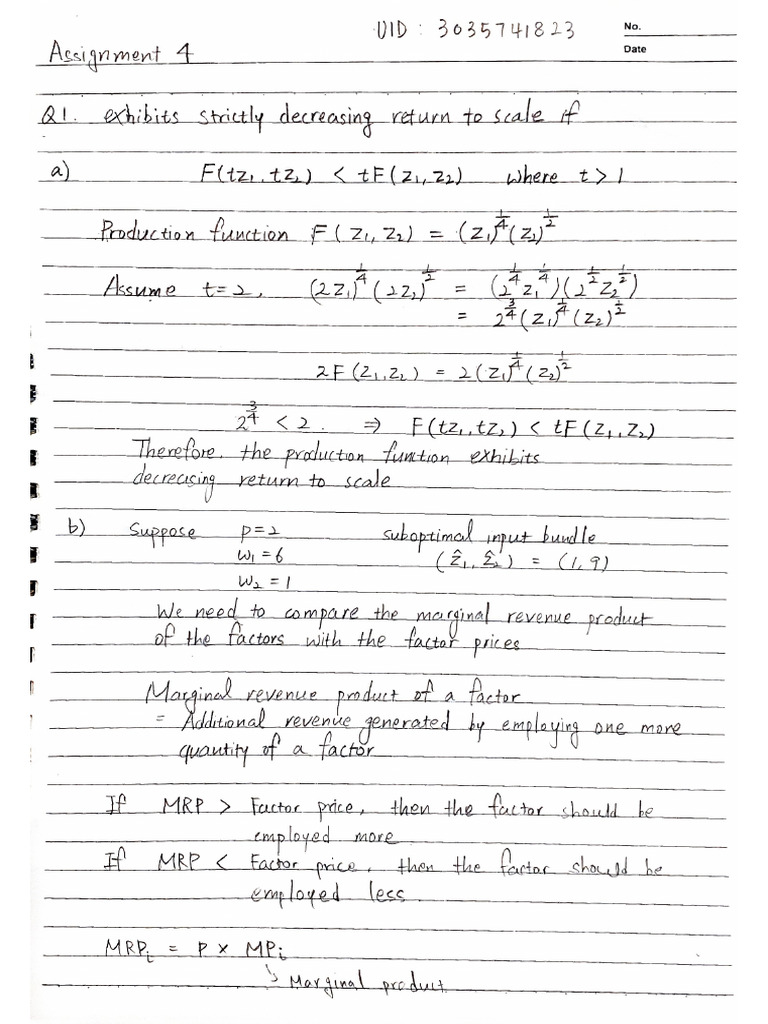 UID : 3035741823
No.
Date
Assignment 4
Q1. exhibits strictly decreasing return to scale if
a) F(tz₁, tz₂) < tF(z₁, z₂) where t > 1
Production function F(z₁, z₂) = (z₁)^¼ (z₂)^½
Assume t=2, (2z₁)^¼ (2z₂)^½ = (2^¼ z₁^¼)(2^½ z₂^½)
= 2^¾ (z₁)^¼ (z₂)^½
2F(z₁, z₂) = 2(z₁)^¼ (z₂)^½
2^¾ < 2. ⇒ F(tz₁, tz₂) < tF(z₁, z₂)
Therefore, the production function exhibits
decreasing return to scale
b) Suppose p=2 suboptimal input bundle
w₁ = 6 (ẑ₁, ẑ₂) = (1, 9)
w₂ = 1
We need to compare the marginal revenue product
of the factors with the factor prices
Marginal revenue product of a factor
= Additional revenue generated by employing one more
quantity of a factor
If MRP > Factor price, then the factor should be
employed more
If MRP < Factor price, then the factor should be
employed less.
MRPᵢ = P × MPᵢ
↳ Marginal product